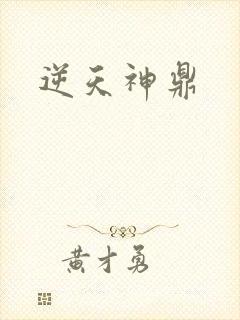 逆天神鼎
黄才勇